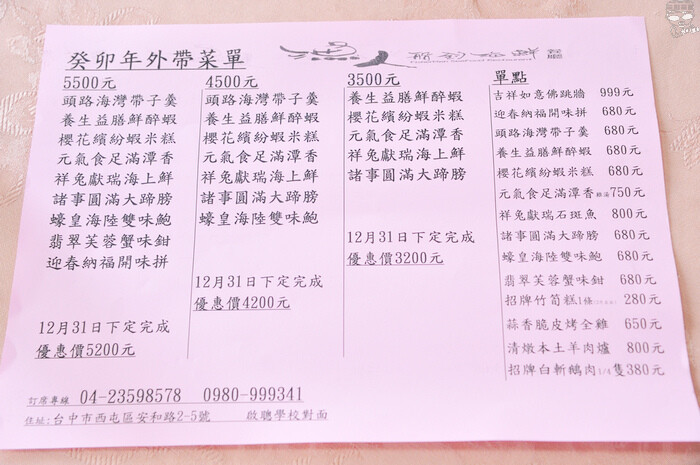 癸卯年外帶菜單
5500元
頭路海灣帶子羹
養生益膳鮮醉蝦
櫻花繽紛蝦米糕
元氣食足滿潭香
祥兔獻瑞海上鮮
諸事圓滿大蹄膀
蠔皇海陸雙味鮑
翡翠芙蓉蟹味鉗
迎春納福開味拼
12月31日下定完成
優惠價5200元
4500元
頭路海灣帶子羹
養生益膳鮮醉蝦
櫻花繽紛蝦米糕
元氣食足滿潭香
祥兔獻瑞海上鮮
諸事圓滿大蹄膀
蠔皇海陸雙味鮑
12月31日下定完成
優惠價4200元
3500元
養生益膳鮮醉蝦
櫻花繽紛蝦米糕
元氣食足滿潭香
祥兔獻瑞海上鮮
諸事圓滿大蹄膀
12月31日下定完成
優惠價3200元
單點
吉祥如意佛跳牆 999元
迎春納福開味拼 680元
頭路海灣帶子羹 680元
養生益膳鮮醉蝦 680元
櫻花繽紛蝦米糕 680元
元氣食足滿潭香 雞湯750元
祥兔獻瑞石斑魚 800元
諸事圓滿大蹄膀 680元
蠔皇海陸雙味鮑 680元
翡翠芙蓉蟹味鉗 680元
招牌竹筍糕1條 280元
蒜香脆皮烤全雞 650元
清燉本土羊肉爐 800元
招牌白斬鵝肉1/4隻380元
訂席專線 04-23598578 0980-999341
住址:台中市西屯區安和路2-5號 啟聰學校對面